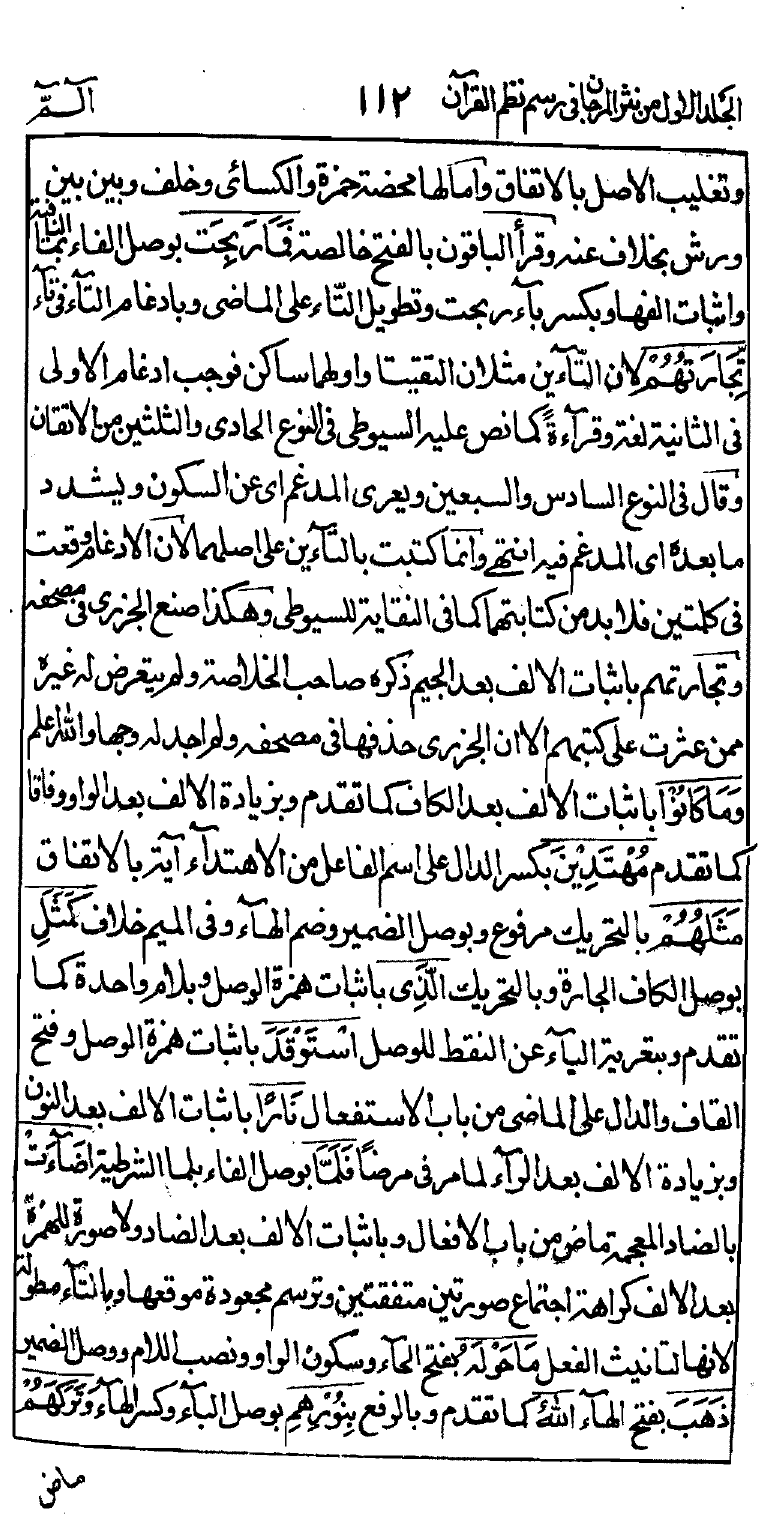 المجلد الاول من نثر المرجان فى رسم نظم القرآن ١١٢ الٓمّٓ
وتغليب الاصل بالاتفاق وامالها محضة حمزة والكسائى وخلف وبين بين
ورش بخلاف عنه وقرأ الباقون بالفتح خالصة فَمَا رَبِحَت بوصل الفاء بما النافية
واثبات الفها وبكسر باء ربحت وتطويل التّاء على الماضى وبادغام التاء فى تاء
تِّجَارَتُهُمْ لان التّاءين مثلان التقيتا واولهما ساكن فوجب ادغام الاولى
فى الثانية لغة وقرآءةً كما نص عليه السيوطى فى النوع الحادى والثلثين من الاتقان
وقال فى النوع السادس والسبعين ويعرى المدغم اى عن السكون ويشدد
ما بعده اى المدغم فيه انتهى وانما كتبت بالتاءين على اصلهما لان الادغام وقعت
فى كلمتين فلابد من كتابتهما كما فى النقاية للسيوطى وهكذا صنع الجزرى فى مصحفه
وتجارتهم باثبات الالف بعد الجيم ذكره صاحب الخلاصة ولم يتعرض له غيره
ممن عثرت على كتبهم الا ان الجزرى حذفها فى مصحفه ولم اجد له وجها والله اعلم
وَمَا كَانُوْا باثبات الالف بعد الكاف كما تقدم وبزيادة الالف بعد الواو وفاقا
كما تقدم مُهْتَدِيْنَ بكسر الدال على اسم الفاعل من الاهتداء آية بالاتفاق
مَثَلُهُمْ بالتحريك مرفوع وبوصل الضمير وضم الهاء وفى الميم خلاف كَمَثَلِ
بوصل الكاف الجارة وبالتحريك الَّذِى باثبات همزة الوصل وبلام واحدة كما
تقدم وبتعرية الياء عن النقط للوصل اسْتَوْقَدَ باثبات همزة الوصل وفتح
القاف والدال على الماضى من باب الاستفعال نَارًا باثبات الالف بعد النون
وبزيادة الالف بعد الرآء لما مر فى مرضًا فَلَمَّا بوصل الفاء بلما الشرطية اضَآءَتْ
بالضاد المعجمة ماض من باب الافعال وباثبات الالف بعد الضاد ولا صورة للهمزة
بعد الالف كراهة اجتماع صورتين متفقتين وترسم مجعودة موقعها وبالتاء مطولة
لانها لتانيث الفعل مَا حَوْلَهُ بفتح الحاء وسكون الواو ونصب اللام ووصل الضمير
ذَهَبَ بفتح الهاء اللهُ كما تقدم وبالرفع بِنُوْرِهِمْ بوصل الباء وكسر الهاء وَتَرَكَهُمْ
ماض